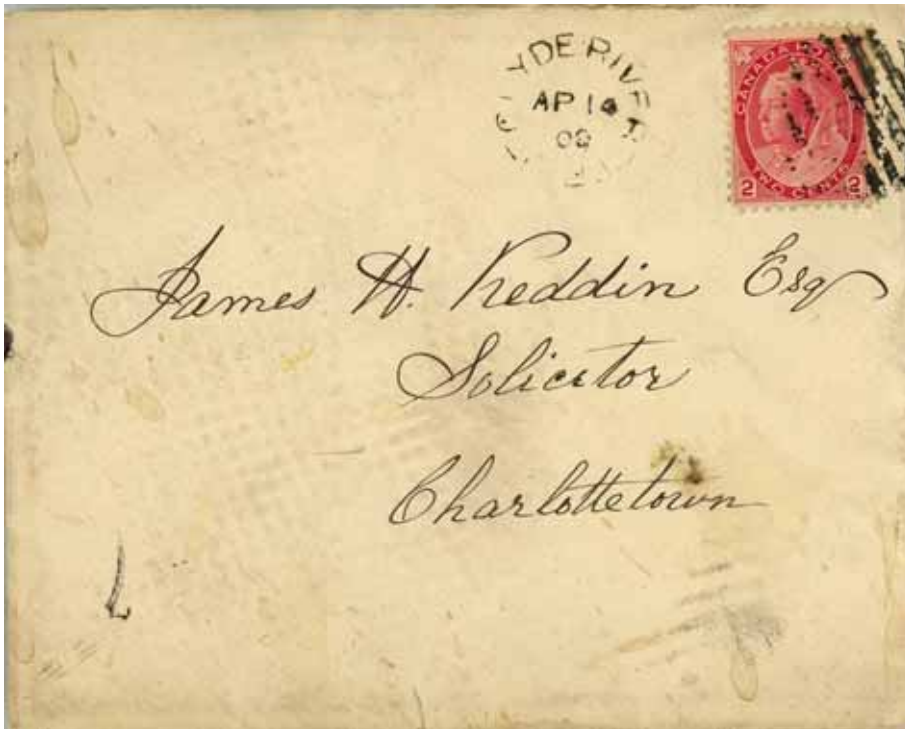 CLYDE RIVER
AP 14
CANADA POSTAGE
2 TWO CENTS 2
James H. Reddin Esq
Solicitor
Charlottetown